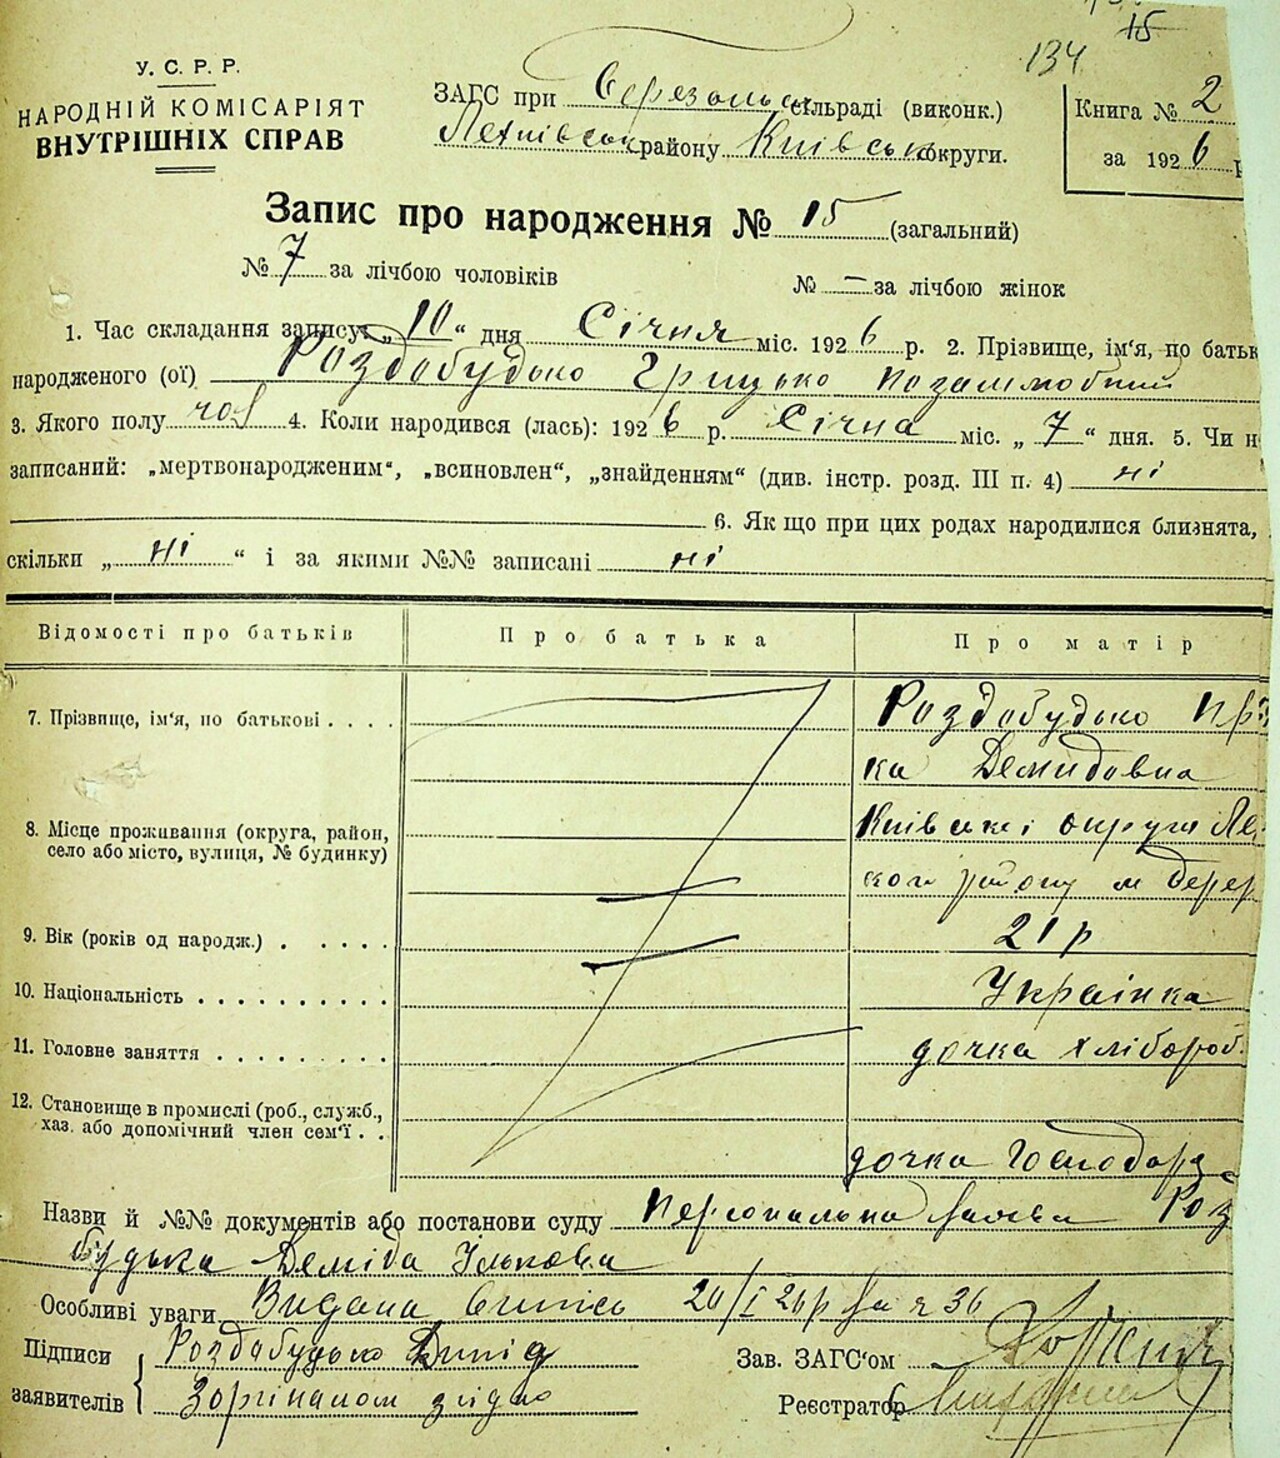 15
134
У. С. Р. Р.
НАРОДНІЙ КОМІСАРІЯТ
ВНУТРІШНІХ СПРАВ
ЗАГС при сільраді (виконк.)
району Київської округи.
Книга № 2
за 1926 р
Запис про народження № 15 (загальний)
№ 7 за лічбою чоловіків № — за лічбою жінок
1. Час складання запису: „ 10 “ дня Січня міс. 1926 р. 2. Прізвище, ім‘я, по батьк
народженого (ої) Роздобудько Грицько позашлюбний
3. Якого полу чол 4. Коли народився (лась): 1926 р. Січня міс. „ 7 “ дня. 5. Чи н
записаний: „мертвонародженим“, „всиновлен“, „знайденням“ (див. інстр. розд. III п. 4) ні
6. Як що при цих родах народилися близнята,
скільки „ ні “ і за якими №№ записані ні
Відомості про батьків Про батька Про матір
7. Прізвище, ім‘я, по батькові . . . . Роздобудько
ка Демидовна
8. Місце проживання (округа, район, Київської округи Ле
село або місто, вулиця, № будинку) кого району м Берез
9. Вік (років од народж.) . . . . . 21 р
10. Національність . . . . . . . . . . Українка
11. Головне заняття . . . . . . . . . дочка хлібороб.
12. Становище в промислі (роб., служб.,
хаз. або допомічний член сем‘ї . . дочка Господаря
Назви й №№ документів або постанови суду Персональна заява Роз
будька Деміда Ількова
Особливі уваги Видана випись 20/I 26р за № 36
Підписи Роздобудько Демід
заявителів З оргіналом згідно
Зав. ЗАГС‘ом
Реєстратор